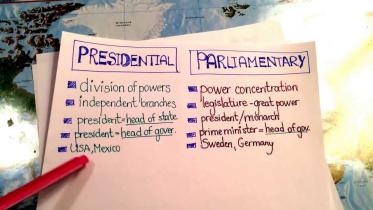 PRESIDENTIAL
division of powers
independent branches
president=head of state
president=head of gover.
USA, Mexico
PARLIAMENTARY
power concentration
legislature-great power
president/monarch
prime minister=head of gov.
Sweden, Germany